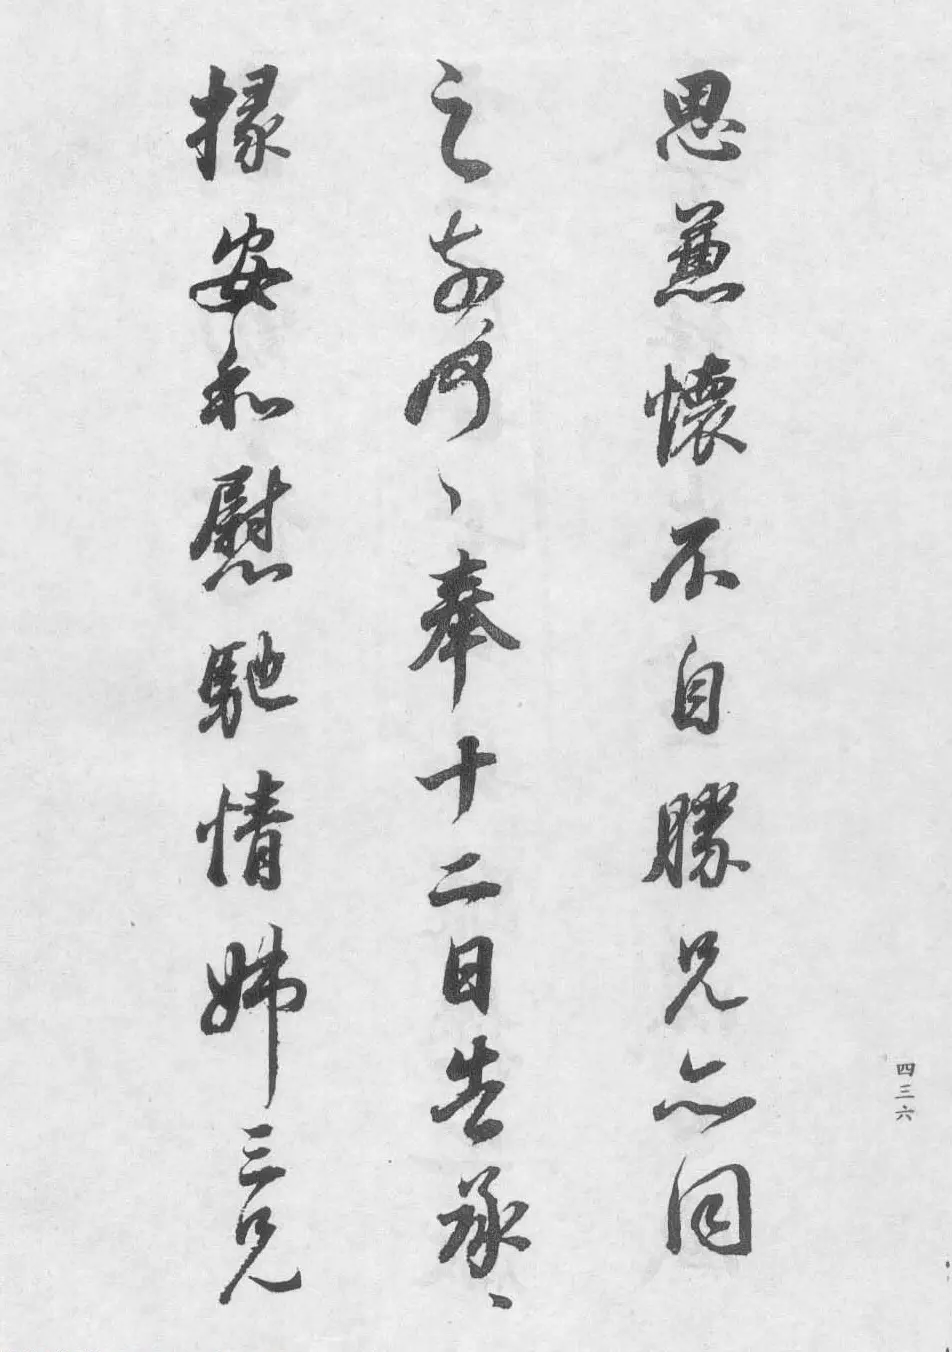 思兼懷不自勝兄亦同
之奈何〻奉十二日告承〻
掾安和慰馳情姊三兄
四三六